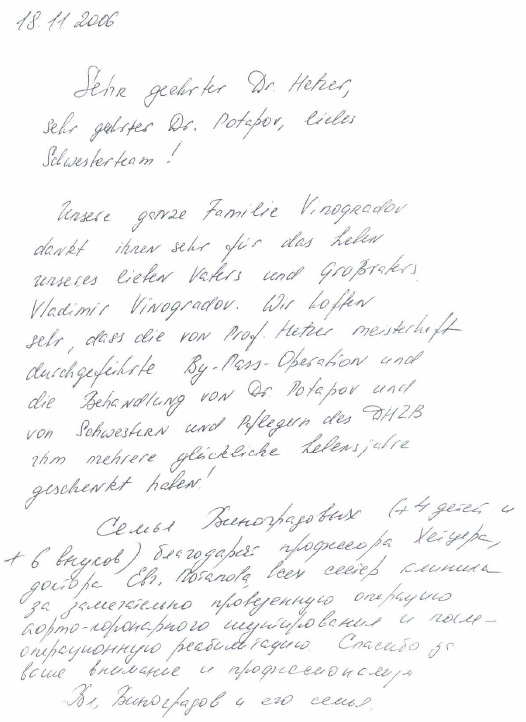 18.11.2006
Sehr geehrter Dr. Hetzer,
sehr geehrter Dr. Potapov, liebes
Schwesterteam!
Unsere ganze Familie Vinogradov
dankt ihnen sehr für das Leben
unseres lieben Vaters und Großvaters
Vladimir Vinogradov. Wir hoffen
sehr, dass die von Prof. Hetzer meisterhaft
durchgeführte By-Pass-Operation und
die Behandlung von Dr. Potapov und
von Schwestern und Pflegern des DHZB
ihm mehrere glückliche Lebensjahre
geschenkt haben!
Семья Виноградовых (+4 детей и
+ 6 внуков) благодарит профессора Хетцера,
доктора Евг. Потапова, всех сестер клиники
за замечательно проведенную операцию
аорто-коронарного шунтирования и после-
операционную реабилитацию. Спасибо за
ваше внимание и профессионализм
Вл. Виноградов и его семья.